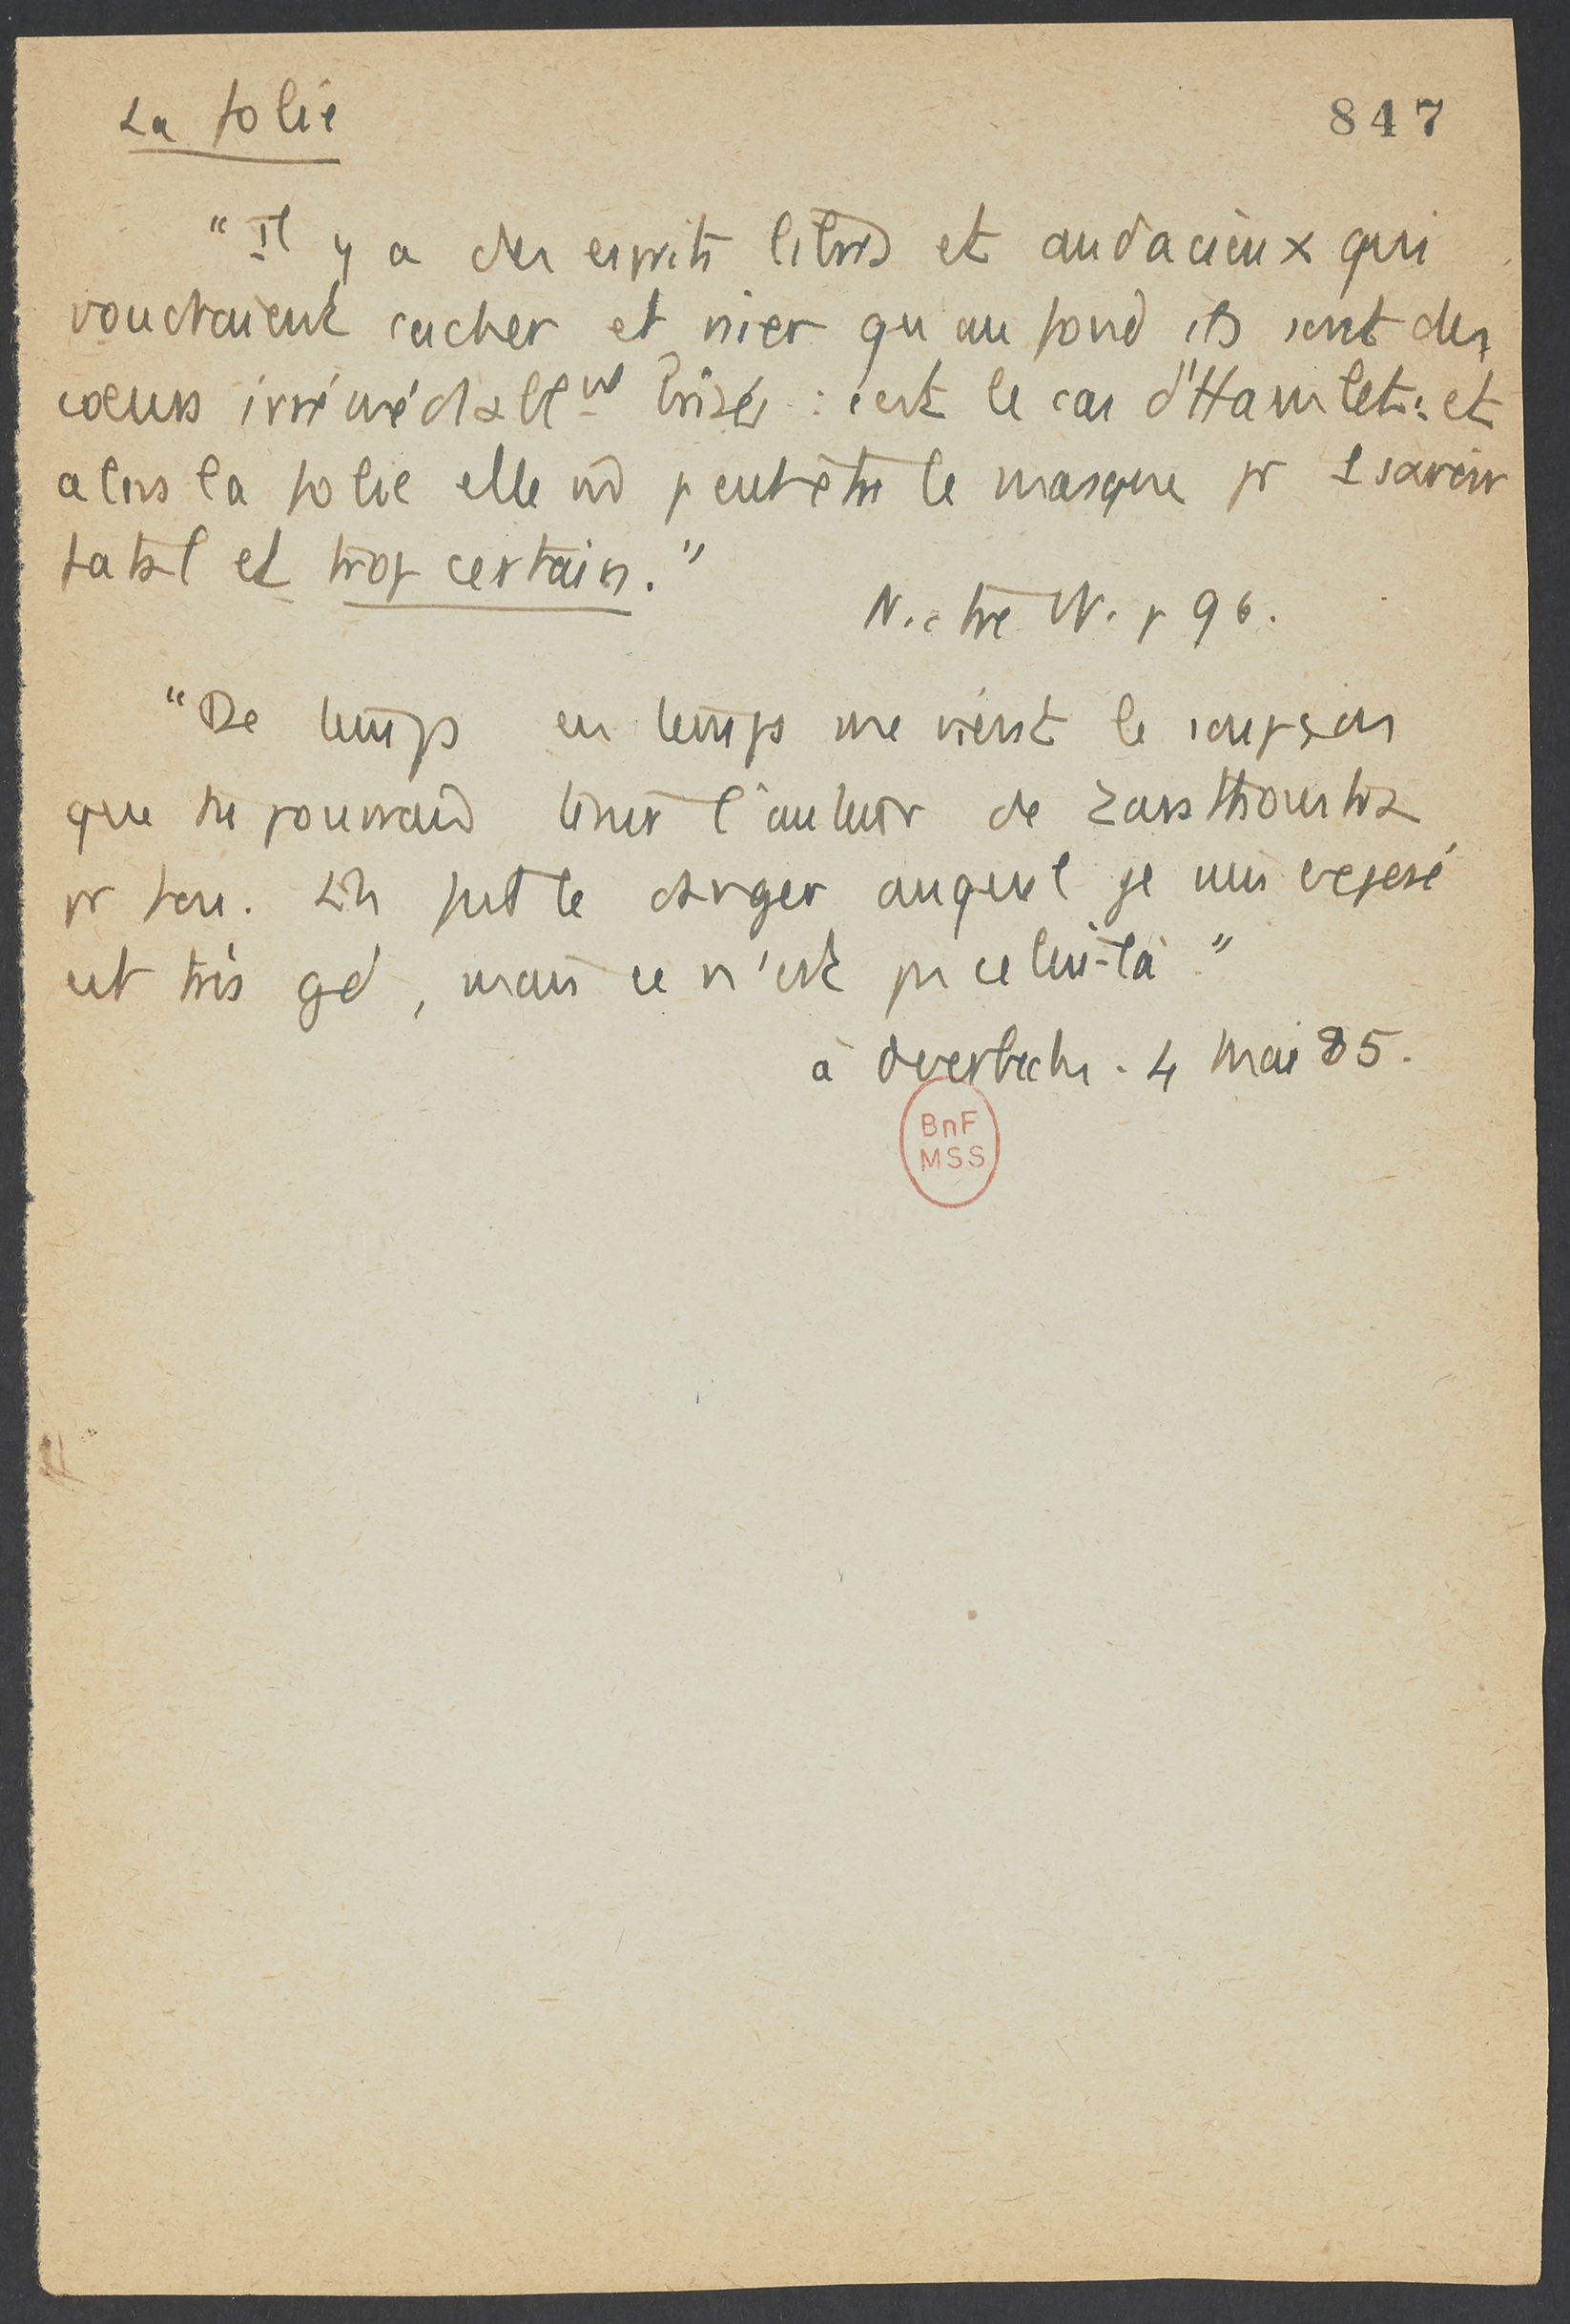 La folie
847
"Il y a des esprits libres et audacieux qui
voudraient cacher et nier qu'au fond ils sont des
cœurs irrémédiablemt brisés : c'est le cas d'Hamlet : et
alors la folie elle même peut être le masque pr 1 savoir
fatal et trop certain."
N. ctre W. p 96.
"De temps en temps me vient le soupçon
que tu pourrais tenir l'auteur de Zarathoustra
pr fou. En fait le danger auquel je suis exposé
est très gd, mais ce n'est pas celui-là"
à Overbeck. 4 Mai 85.
BnF
MSS